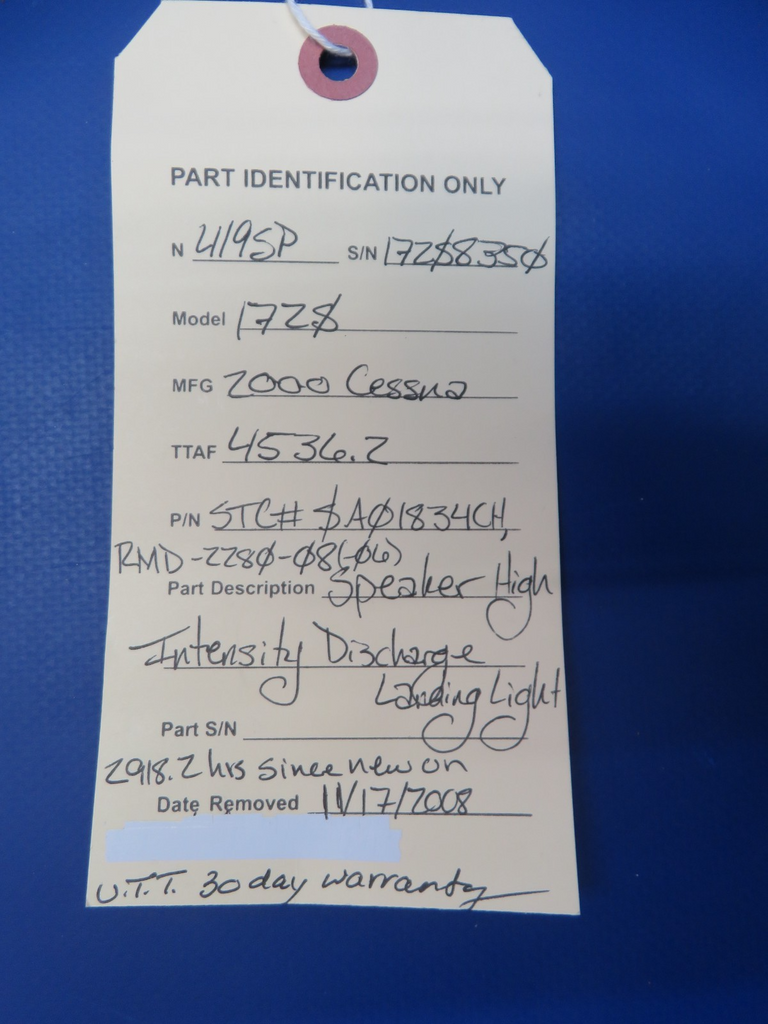 PART IDENTIFICATION ONLY
N 419SP S/N 172S8350
Model 172S
MFG 2000 Cessna
TTAF 4536.2
P/N STC# SA01834CH,
RMD-2280-08(-06)
Part Description Speaker High
Intensity Discharge
Landing Light
Part S/N
2918.2 hrs since new on
Date Removed 11/17/2008
U.T.T. 30 day warranty